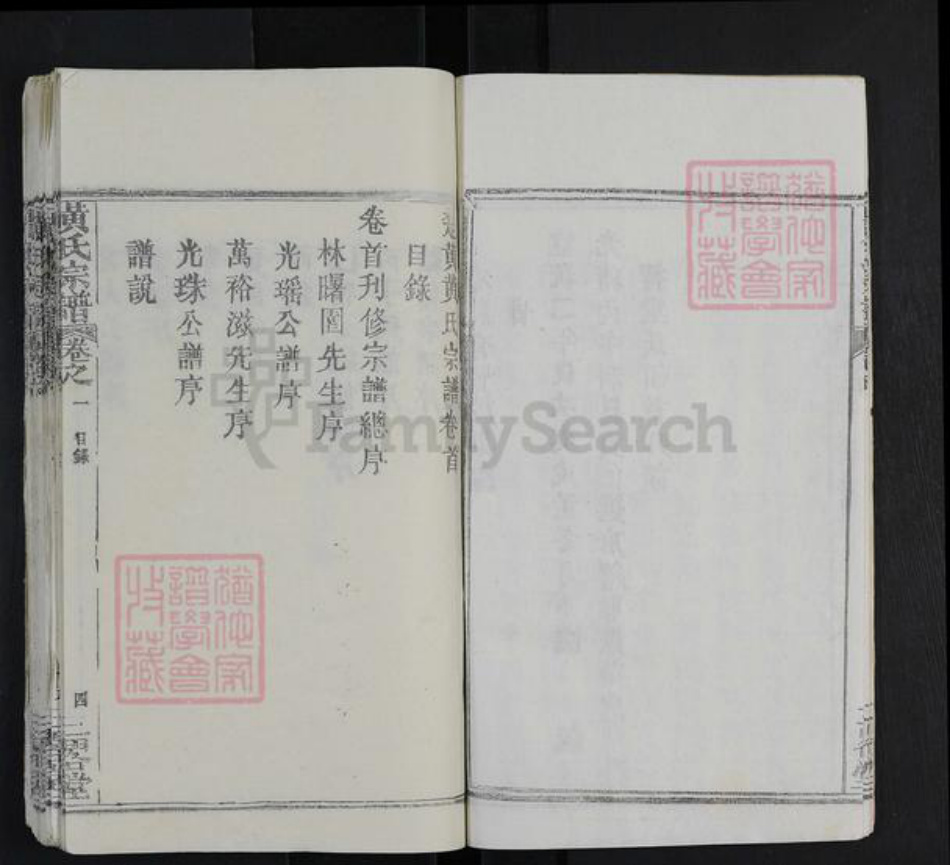 黃氏宗譜卷首
目錄
卷首刊修宗譜總序
林曙圖先生序
光瑶公譜序
萬裕滋先生序
光珠公譜序
譜說
黃氏宗譜
卷之一
目錄
四
堂
猶他家
譜學會
收藏
猶他家
譜學會
收藏
FamilySearch